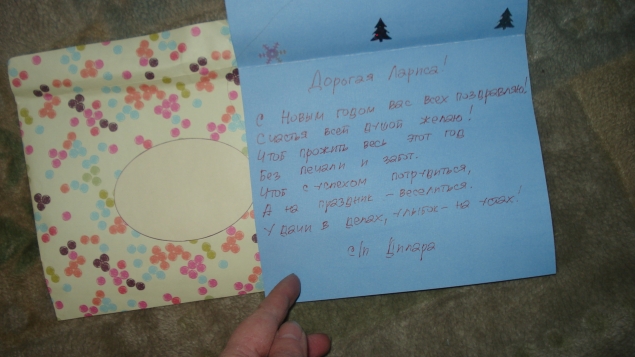 Дорогая Лариса!
С Новым годом вас всех поздравляю!
Счастья всей душой желаю!
Чтоб прожить весь этот год
Без печали и забот.
Чтоб с успехом потрудиться,
А на праздник - веселиться.
Удачи в делах, улыбок - на устах!
с/п Дипара